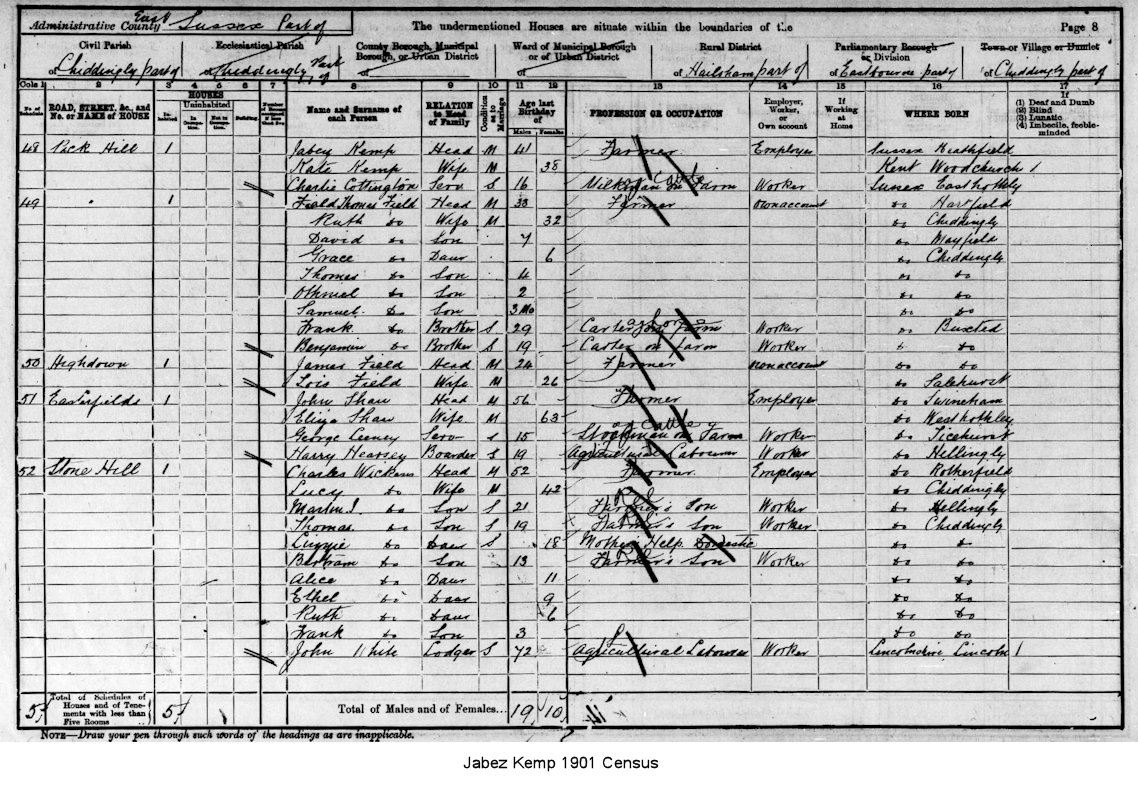 Administrative County East Sussex Part of The undermentioned Houses are situate within the boundaries of the Page 8
Civil Parish Ecclesiastical Parish County Borough, Municipal Borough, or Urban District Ward of Municipal Borough or of Urban District Rural District Parliamentary Borough or Division Town or Village or Hamlet
of Chiddingly part of of Chiddingly Part of of of of Hailsham part of of Eastbourne part of of Chiddingly part of
Cols 1 2 3 4 5 6 7 8 9 10 11 12 13 14 15 16 17
No. of Schedule ROAD, STREET, &c., and No. or NAME of HOUSE HOUSES Inhabited Uninhabited In Occupation Not in Occupation Building Name and Surname of each Person RELATION to Head of Family Condition as to Marriage Age last Birthday of Males Females PROFESSION OR OCCUPATION Employer, Worker, or Own account If Working at Home WHERE BORN If (1) Deaf and Dumb (2) Blind (3) Lunatic (4) Imbecile, feeble-minded
48 Pick Hill 1 Jabez Kemp Head M 41 Farmer Employer Sussex Heathfield
Kate Kemp Wife M 38 Kent Woodchurch 1
Charlie Cottington Serv S 16 Milkman on Farm Worker Sussex Easthothly
49 " 1 Field Thomas Field Head M 33 Farmer own account do Hartfield
Ruth do Wife M 32 do Chiddingly
David do Son 7 do Mayfield
Grace do Daur 6 do Chiddingly
Thomas do Son 4 do do
Othniel do Son 2 do do
Samuel do Son 3 Mo do do
Frank do Brother S 29 Carter on Farm Worker do Buxted
Benjamin do Brother S 19 Carter on farm Worker do do
50 Highdown 1 James Field Head M 24 Farmer own account do do
Lois Field Wife M 26 do Salehurst
51 Easterfields 1 John Shaw Head M 56 Farmer Employer do
Eliza Shaw Wife M 63 do West hothley
George Leeney Serv S 15 Stockman on Farm Worker do Ticehurst
Harry Hearsey Boarder S 19 Agricultural Labourer Worker do Hellingly
52 Stone Hill 1 Charles Wickens Head M 52 Farmer Employer do Rotherfield
Lucy do Wife M 42 do Chiddingly
Martin J. do Son S 21 Farmer's Son Worker do Hellingly
Thomas do Son S 19 Farmer's Son Worker do Chiddingly
Lizzie do Daur S 18 Mother's Help Domestic do do
Bertram do Son 13 Farmer's Son Worker do do
Alice do Daur 11 do do
Ethel do Daur 9 do do
Ruth do Daur 6 do do
Frank do Son 3 do do
John White Lodger S 72 Agricultural Labourer Worker Lincolnshire Lincoln 1
5 Total of Schedules of Houses and of Tenements with less than Five Rooms 5 Total of Males and of Females... 19 10
NOTE—Draw your pen through such words of the headings as are inapplicable.
Jabez Kemp 1901 Census